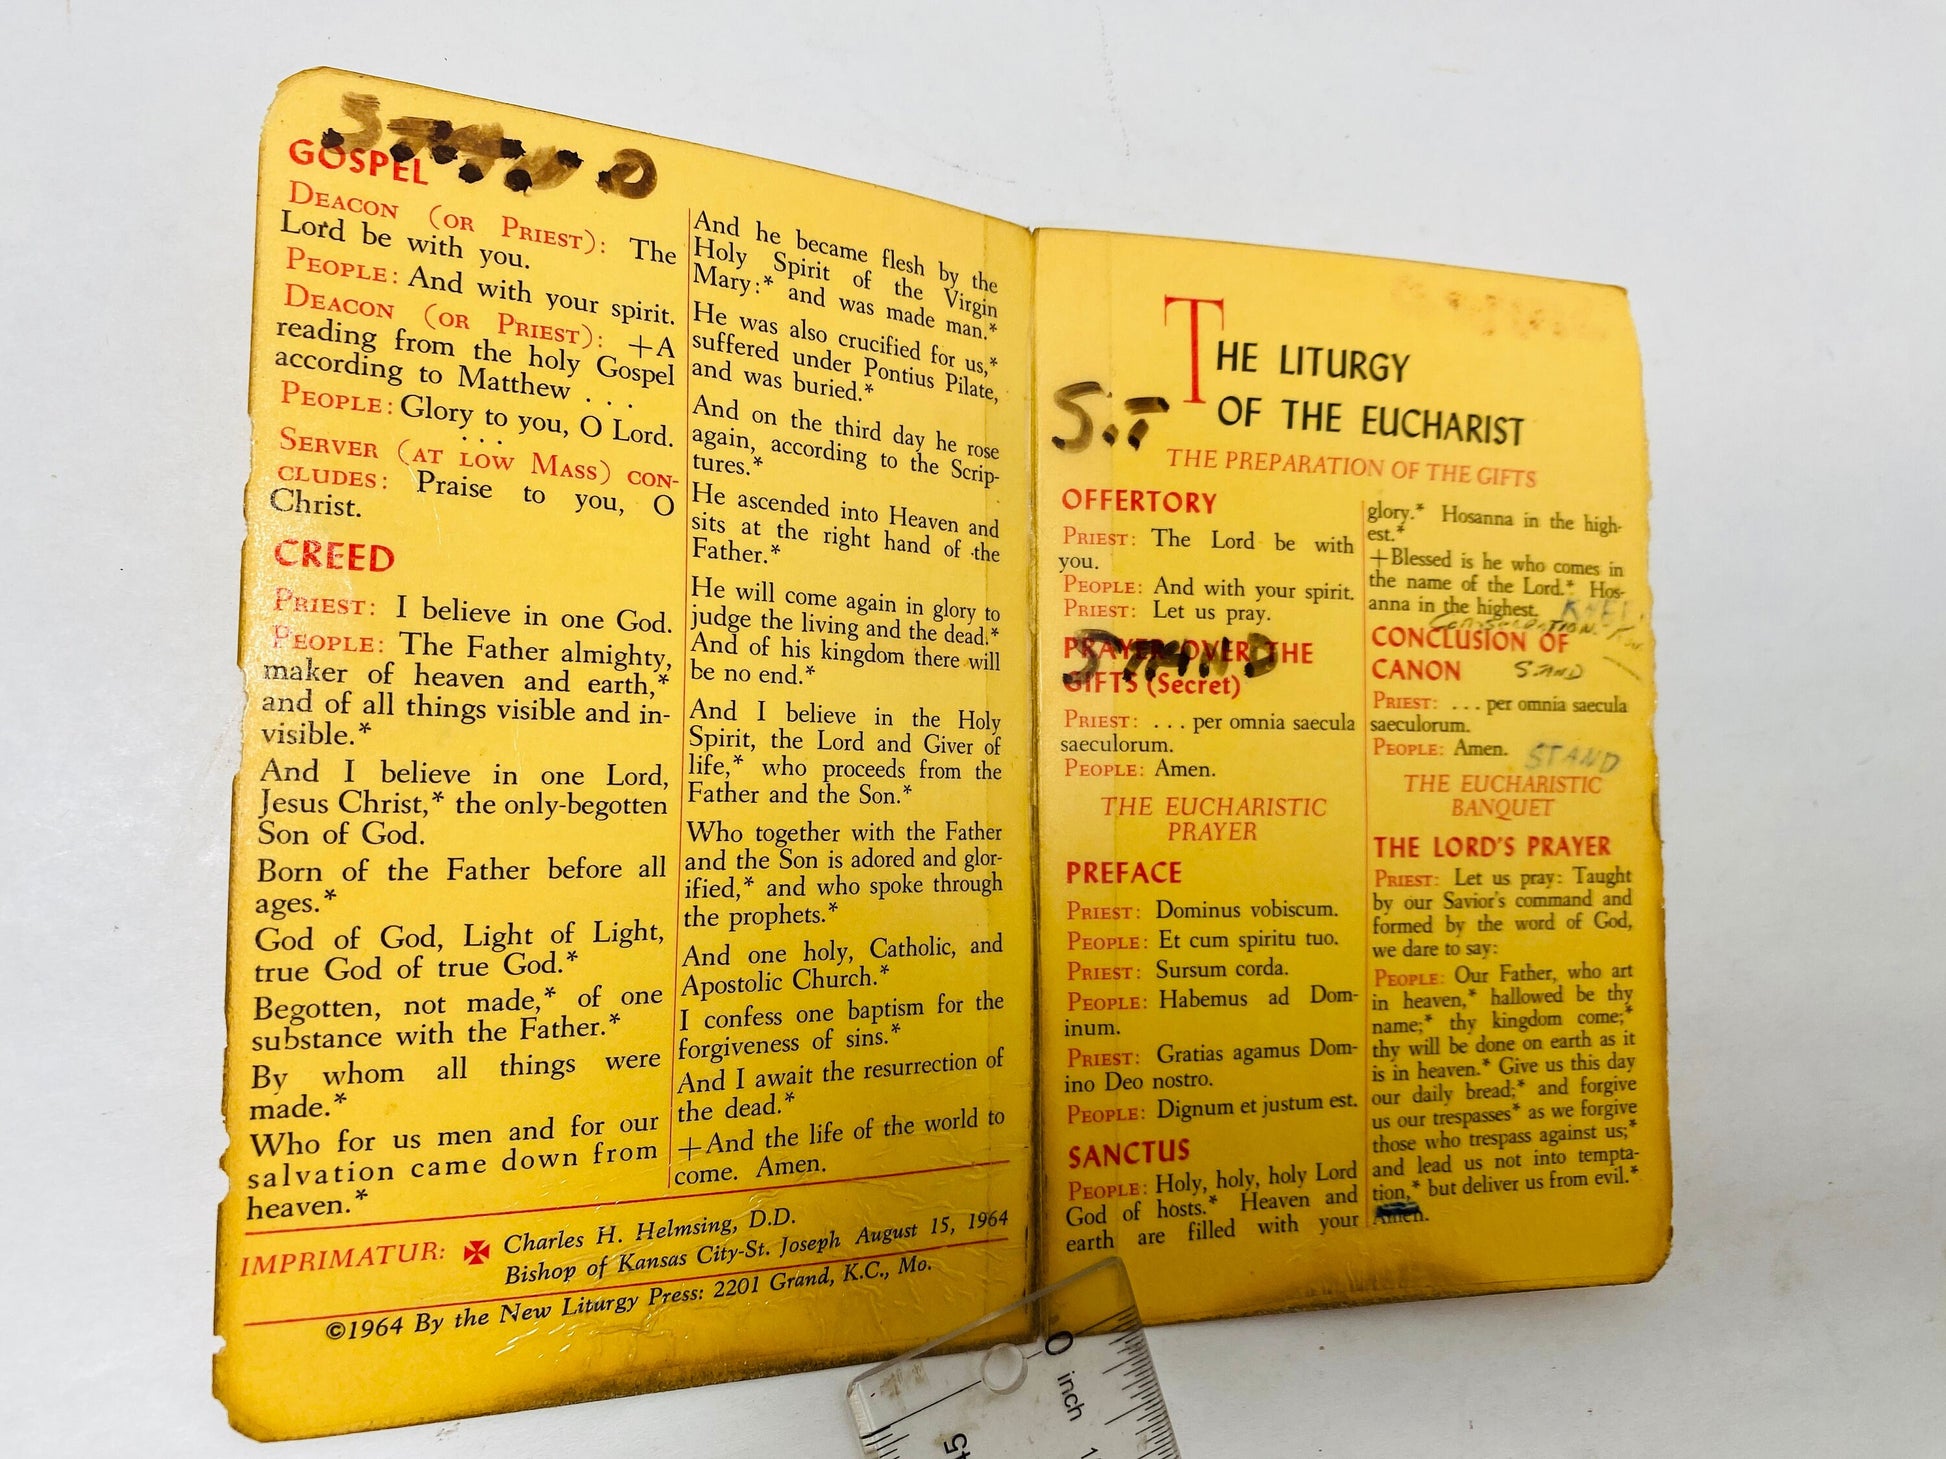 STAND
GOSPEL
DEACON (OR PRIEST): The
Lord be with you.
PEOPLE: And with your spirit.
DEACON (OR PRIEST): +A
reading from the holy Gospel
according to Matthew . . .
PEOPLE: Glory to you, O Lord.
. . .
SERVER (AT LOW MASS) CON-
CLUDES: Praise to you, O
Christ.
CREED
PRIEST: I believe in one God.
PEOPLE: The Father almighty,
maker of heaven and earth,*
and of all things visible and in-
visible.*
And I believe in one Lord,
Jesus Christ,* the only-begotten
Son of God.
Born of the Father before all
ages.*
God of God, Light of Light,
true God of true God.*
Begotten, not made,* of one
substance with the Father.*
By whom all things were
made.*
Who for us men and for our
salvation came down from
heaven.*
And he became flesh by the
Holy Spirit of the Virgin
Mary:* and was made man.*
He was also crucified for us,*
suffered under Pontius Pilate,
and was buried.*
And on the third day he rose
again, according to the Scrip-
tures.*
He ascended into Heaven and
sits at the right hand of the
Father.*
He will come again in glory to
judge the living and the dead.*
And of his kingdom there will
be no end.*
And I believe in the Holy
Spirit, the Lord and Giver of
life,* who proceeds from the
Father and the Son.*
Who together with the Father
and the Son is adored and glor-
ified,* and who spoke through
the prophets.*
And one holy, Catholic, and
Apostolic Church.*
I confess one baptism for the
forgiveness of sins.*
And I await the resurrection of
the dead.*
+And the life of the world to
come. Amen.
IMPRIMATUR: ✠ Charles H. Helmsing, D.D.
Bishop of Kansas City-St. Joseph August 15, 1964
©1964 By the New Liturgy Press: 2201 Grand, K.C., Mo.
THE LITURGY
OF THE EUCHARIST
SIT
THE PREPARATION OF THE GIFTS
OFFERTORY
PRIEST: The Lord be with
you.
PEOPLE: And with your spirit.
PRIEST: Let us pray.
STAND
PRAYER OVER THE
GIFTS (Secret)
PRIEST: . . . per omnia saecula
saeculorum.
PEOPLE: Amen.
THE EUCHARISTIC
PRAYER
PREFACE
PRIEST: Dominus vobiscum.
PEOPLE: Et cum spiritu tuo.
PRIEST: Sursum corda.
PEOPLE: Habemus ad Dom-
inum.
PRIEST: Gratias agamus Dom-
ino Deo nostro.
PEOPLE: Dignum et justum est.
SANCTUS
PEOPLE: Holy, holy, holy Lord
God of hosts.* Heaven and
earth are filled with your
glory.* Hosanna in the high-
est.*
+Blessed is he who comes in
the name of the Lord.* Hos-
anna in the highest. KNEEL
CONSECRATION
CONCLUSION OF
CANON STAND
PRIEST: . . . per omnia saecula
saeculorum.
PEOPLE: Amen. STAND
THE EUCHARISTIC
BANQUET
THE LORD'S PRAYER
PRIEST: Let us pray: Taught
by our Savior's command and
formed by the word of God,
we dare to say:
PEOPLE: Our Father, who art
in heaven,* hallowed be thy
name;* thy kingdom come;*
thy will be done on earth as it
is in heaven.* Give us this day
our daily bread;* and forgive
us our trespasses* as we forgive
those who trespass against us;*
and lead us not into tempta-
tion,* but deliver us from evil.*
Amen.
0 inch